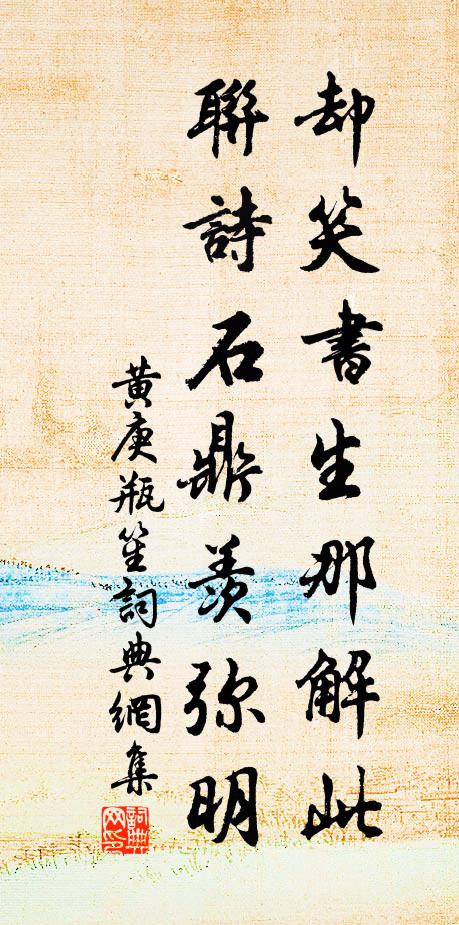 却笑書生那解此
聯詩石鼎羨弥明
黃庚瓶笙詞典網集
詞典网印